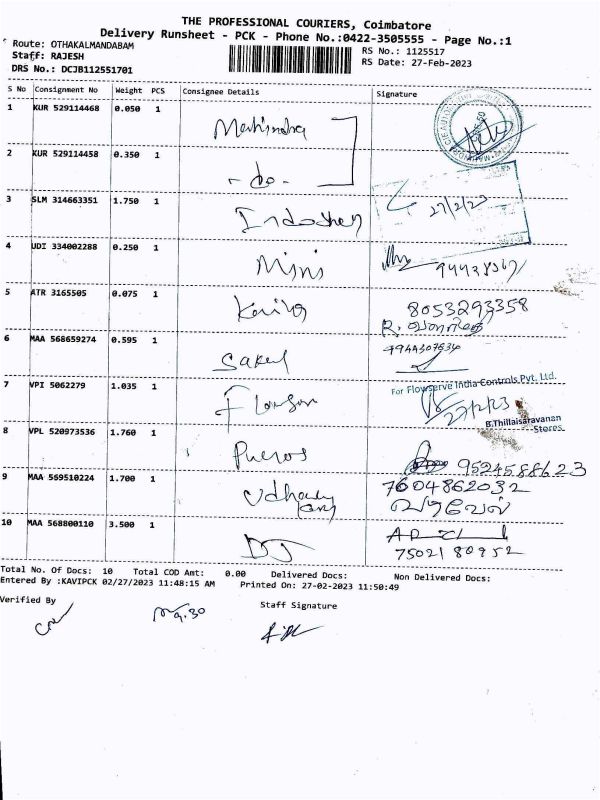 THE PROFESSIONAL COURIERS, Coimbatore
Delivery Runsheet - PCK - Phone No.:0422-3505555 - Page No.:1
Route: OTHAKALMANDABAM
RS No.: 1125517
Staff: RAJESH
RS Date: 27-Feb-2023
DRS No.: DCJB112551701
S No Consignment No Weight PCS Consignee Details Signature
1 KUR 529114468 0.050 1 Mahindra
2 KUR 529114458 0.350 1 -do-
3 SLM 314663351 1.750 1 27/2/23
4 UDI 334002288 0.250 1 Mini
5 ATR 3165505 0.075 1 8053293358
R.
6 MAA 568659274 0.595 1
For Flowserve India Controls Pvt. Ltd.
7 VPI 5062279 1.035 1
B.Thillaisaravanan
Stores.
8 VPL 520973536 1.760 1 9524588623
9 MAA 569510224 1.700 1 7604862032
வடிவேல்
10 MAA 568800110 3.500 1 DJ
7502180952
Total No. Of Docs: 10 Total COD Amt: 0.00 Delivered Docs: Non Delivered Docs:
Entered By :KAVIPCK 02/27/2023 11:48:15 AM Printed On: 27-02-2023 11:50:49
Verified By
9.30
Staff Signature